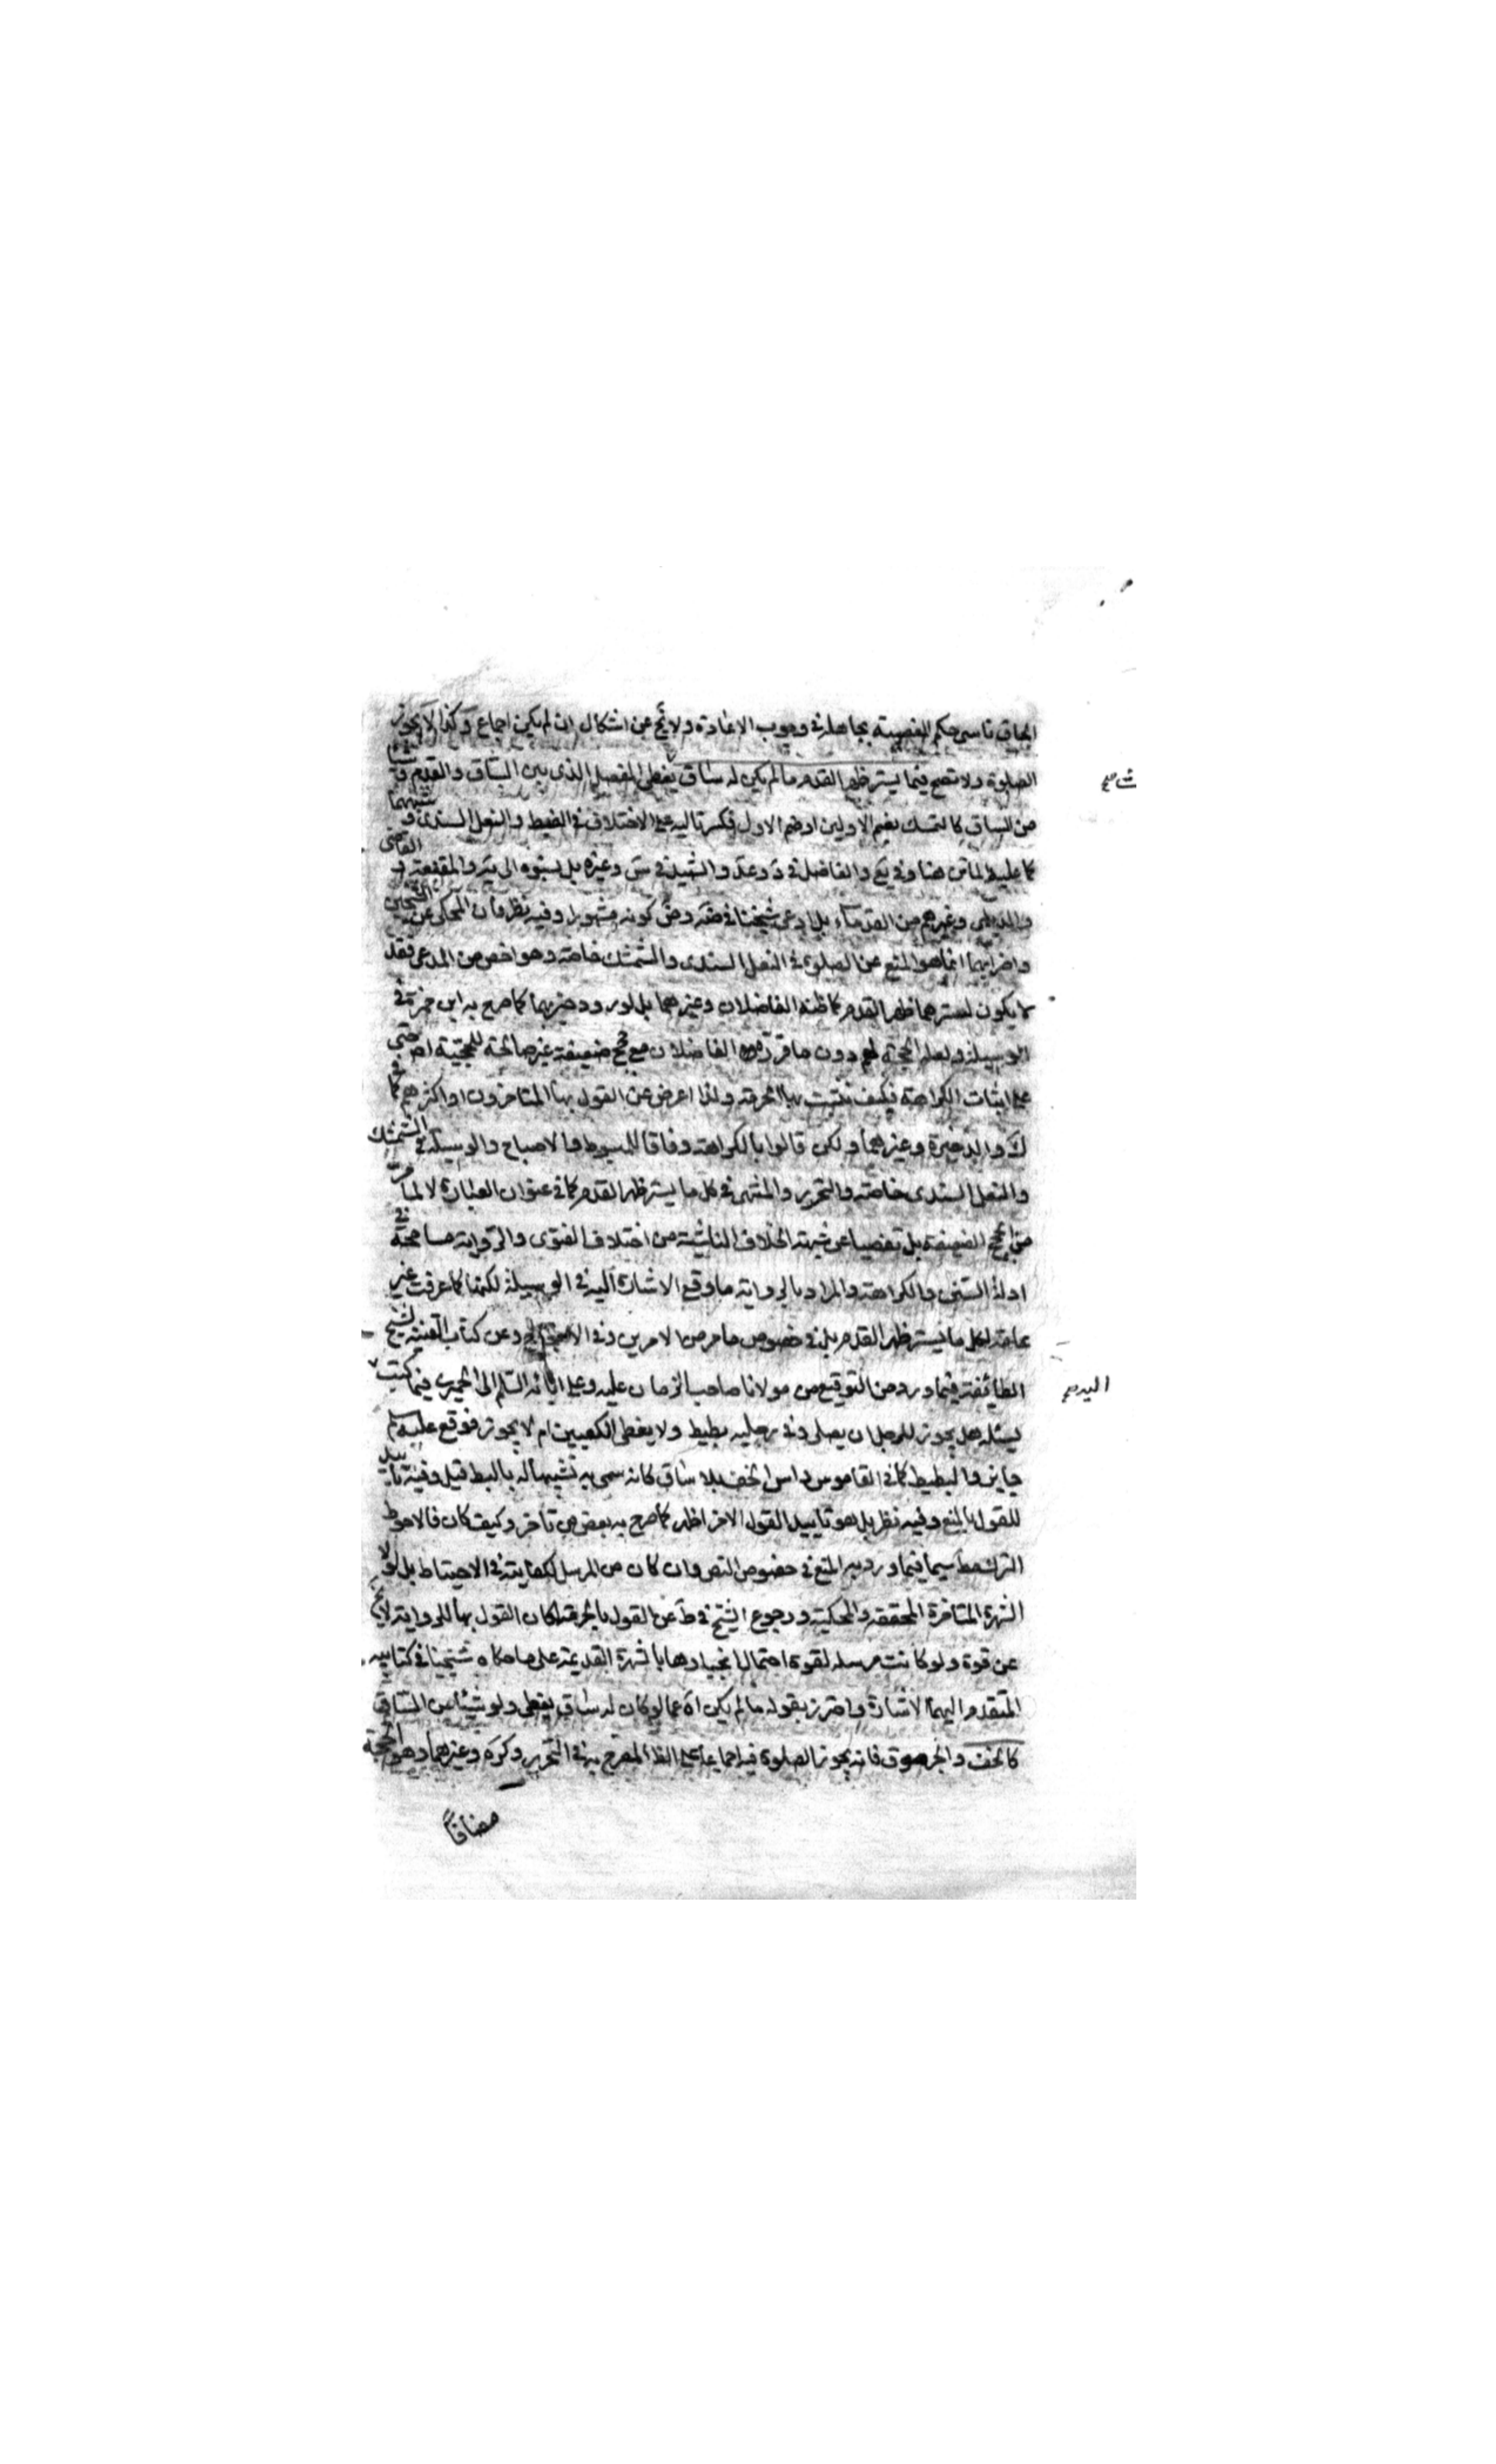 الحاق ناسى حكم الغصبية بجاهله فى وجوب الاعادة ولا يخ عن اشكال ان لم يكن اجماع وكذا لا يجوز
الصلوة ولا تصح فيما يستر ظهر القدم ما لم يكن له ساق يغطى المفصل الذى بين الساق والقدم وشيئا
من الساق كالشمشك بضم الاولين او ضم الاول فكسر تاليه على الاختلاف فى الضبط والنعل السندى وشبههما
كما عليه الماتن هنا وفى يع والفاضل فى د وعد والشهيد فى س وغيره بل نسبوه الى يه والمقنعة والقاضى
والديلمى وغيرهم من القدماء بل ادعى شيخنا فى ضه وض كونه مشهورا وفيه نظر فان المحكى عن الشيخين
واضرابهما انما هو المنع عن الصلوة فى النعل السندى والشمشك خاصة وهو اخص من المدعى فقد
لا يكون لسترهما ظهر القدم كما ظنه الفاضلان وغيرهما بل لورود خبر بهما كما صرح به ابن حمزة فى
الوسيلة ولعله الحجة لهم دون ما قرره الفاضلان مع حجج ضعيفة غير صالحة للحجية اص حتى
على اثبات الكراهة فكيف تثبت بها الحرمة ولذا اعرض عن القول بها المتاخرون او اكثرهم كما فى
لك والذخيرة وغيرهما ولكن قالوا بالكراهة وفاقا للمبسوط والاصباح والوسيلة فى الشمشك
والنعل السندى خاصة والتحرير والمنتهى فى كل ما يستر ظهر القدم كما فى عنوان العبارة لا لما مر
من الحجج الضعيفة بل تفصيا عن شبهة الخلاف الناشئة من اختلاف الفتوى والرواية مسامحة فى
ادلة السنن والكراهة والمراد بالرواية ما وقع الاشارة اليه فى الوسيلة لكنها كما عرفت غير
عامة لكل ما يستر ظهر القدم بل فى خصوص ما مر من الامرين وفى الاحتجاج وعن كتاب الغيبة لشيخ
الطائفة فيما ورد من التوقيع من مولانا صاحب الزمان عليه وعلى ابائه السلم الى الحميرى فيما كتب
اليه صح
يسئله هل يجوز للرجل ان يصلى وفى رجليه بطيط ولا يغطى الكعبين ام لا يجوز فوقع عليه السلم
جايز والبطيط كما فى القاموس راس الخف بلا ساق كانه سمى به تشبيها له بالبط قيل وفيه تاييد
للقول بالمنع وفيه نظر بل هو تاييد القول الاخر اظهر كما صرح به بعض من تاخر وكيف كان فالاحوط
الترك مط سيما فيما ورد به المنع فى خصوص النص وان كان من المرسل لكفايته فى الاحتياط بل لولا
الشهرة المتاخرة المحققة والمحكية ورجوع الشيخ فى ط عن القول بالحرمة لكان القول بها للرواية لا يخ
عن قوة ولو كانت مرسلة لقوة احتمال انجبارها بالشهرة القديمة على ما حكاه شيخنا فى كتابيه
المتقدم اليهما الاشارة واحترز بقوله ما لم يكن اه عما لو كان له ساق يغطى ولو شيئا من الساق
كالخف والجرموق فانه يجوز الصلوة فيه اجماعا على الظ المصرح به فى التحرير وكره وغيرهما وهو الحجة
مضافا